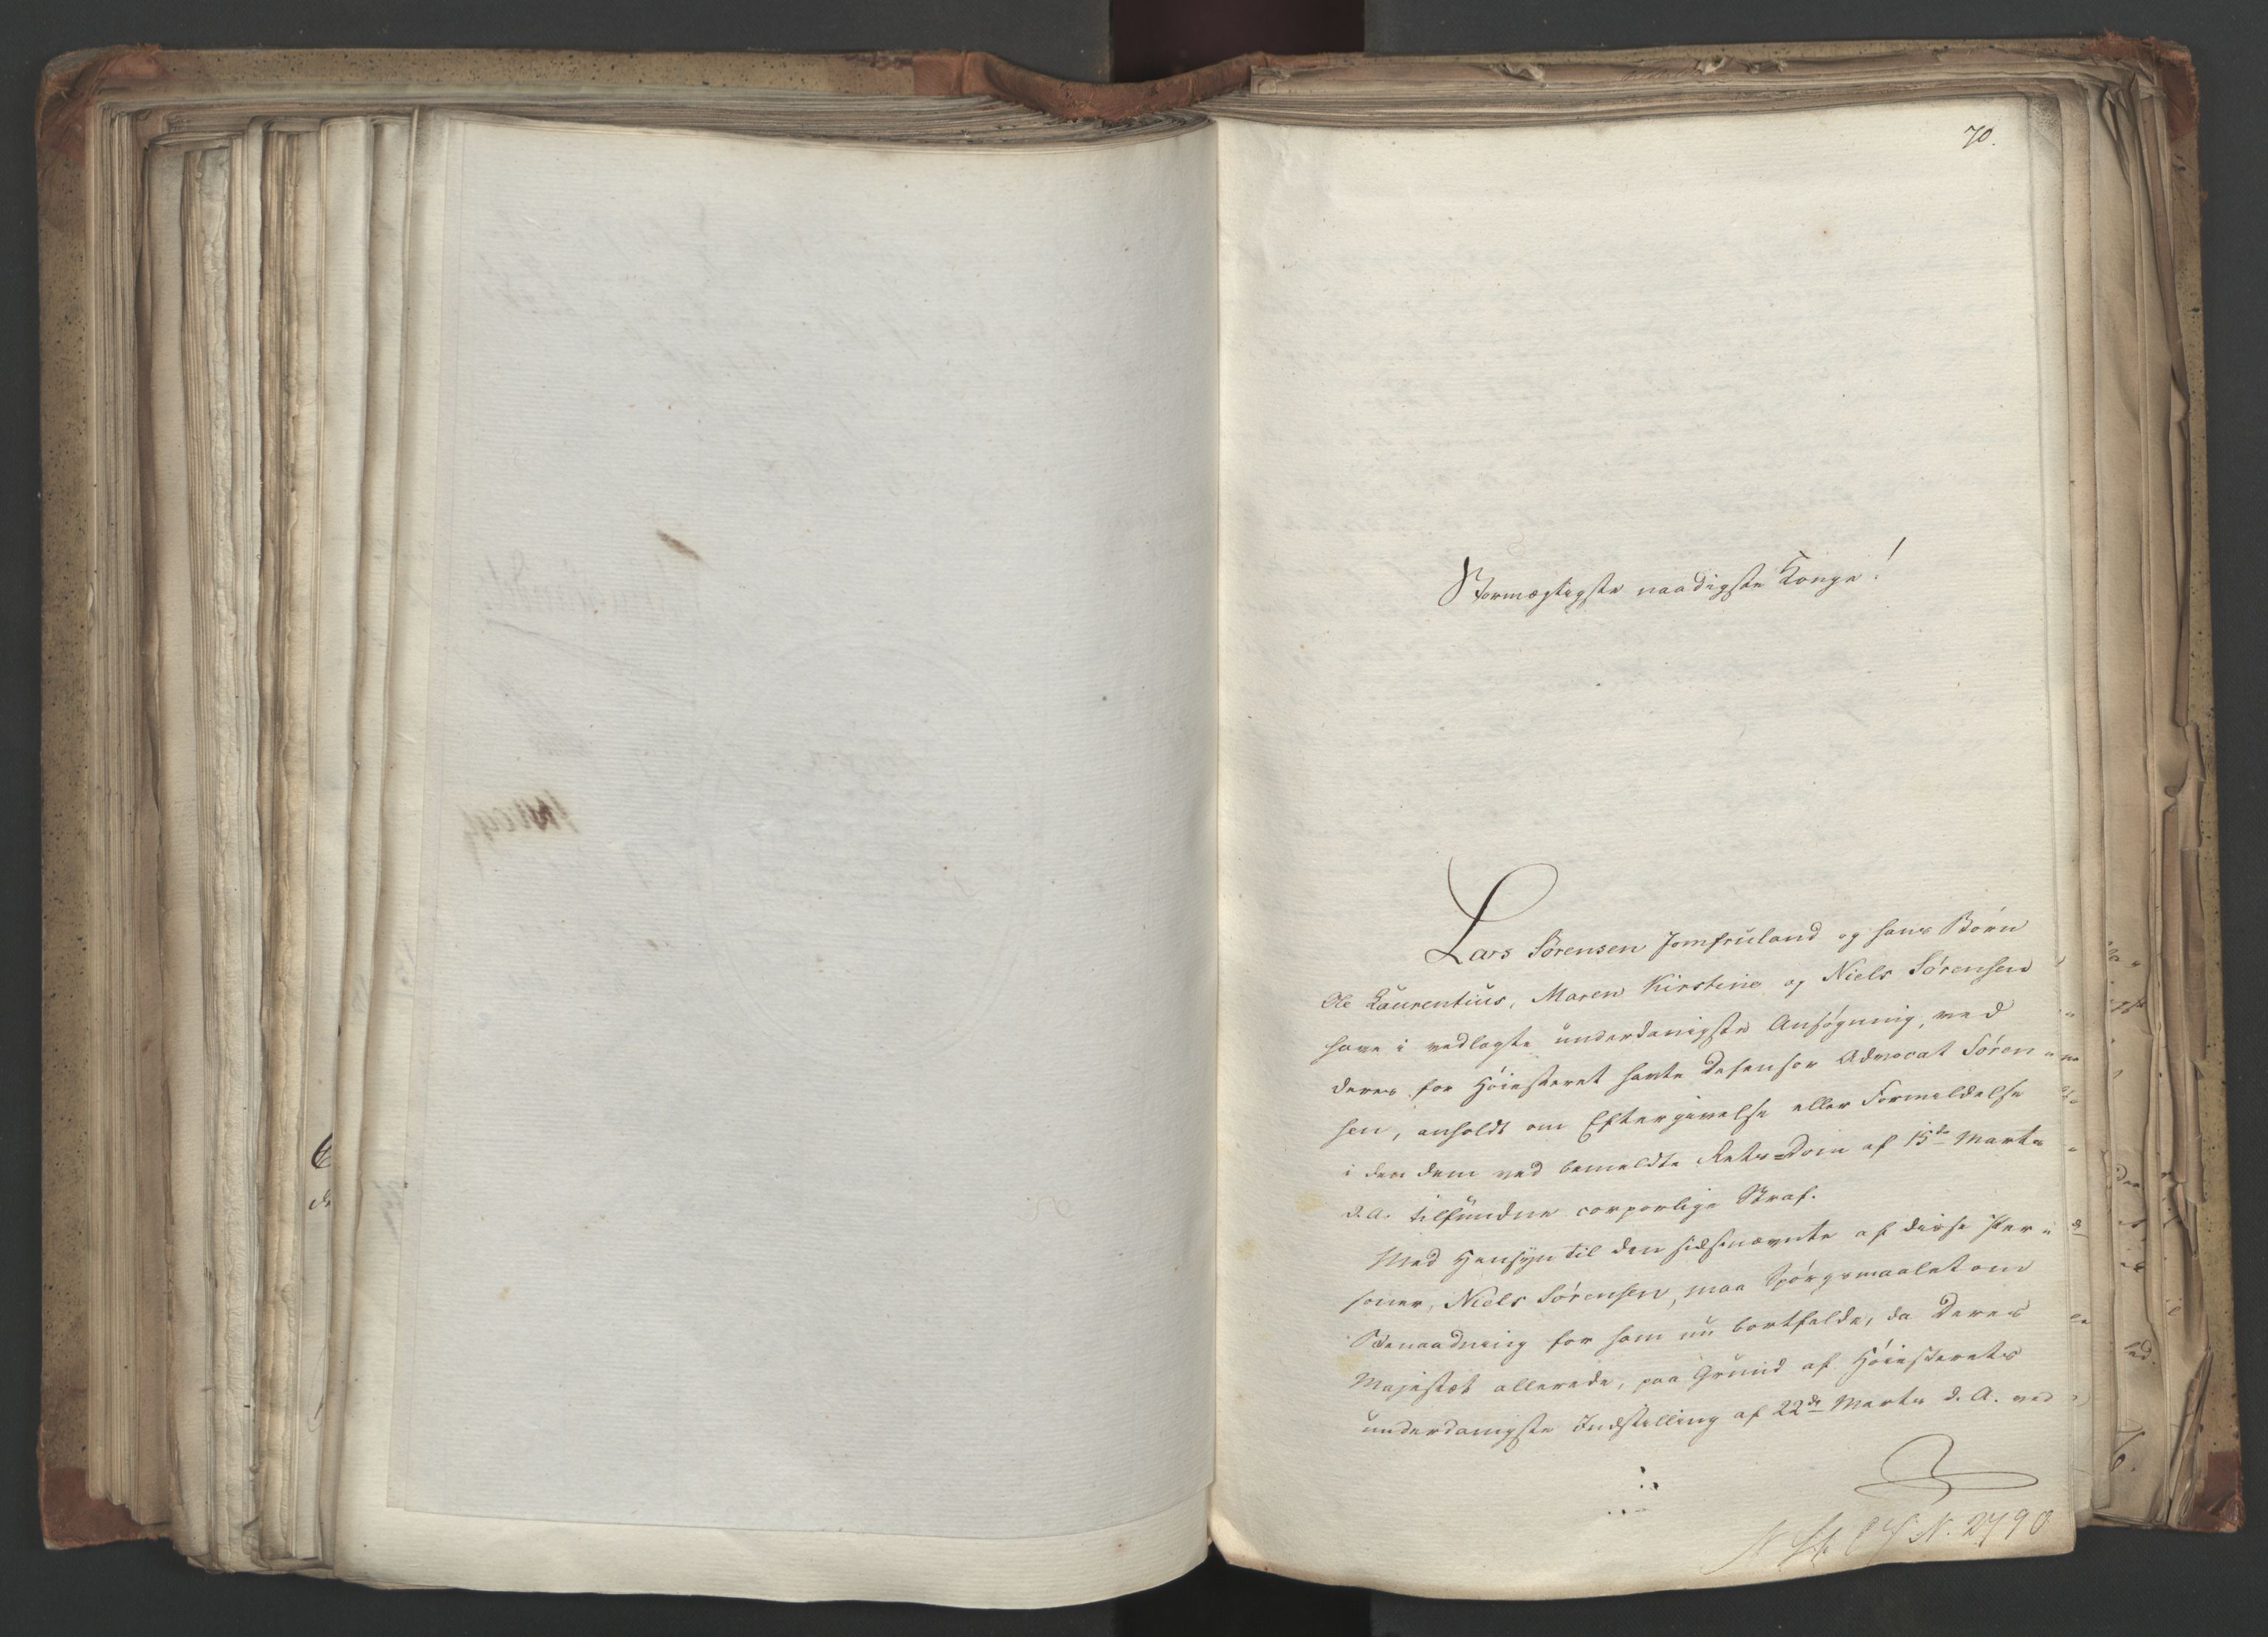 70.
Stormægtigste naadigste Konge!
Lars Sørensen Jomfruland og hans Børn
Ole Laurentius, Maren Kirstine og Niels Sørensen
have i vedlagte underdanigste Ansøgning, ved
deres for Høiesteret havte Defensor Advocat Søren-
sen, anholdt om Eftergivelse eller Formildelse
i den dem ved bemeldte Rets Dom af 15de Marts
d.A. tilfundne corporlige Straf.
Med Hensyn til den sidstnævnte af disse Per-
soner, Niels Sørensen, maa Spørgsmaalet om
Benaadning for ham nu bortfalde, da Deres
Majestæt allerede, paa Grund af Høiesterets
underdanigste Indstilling af 22de Marts d. A. ved
N. 2790